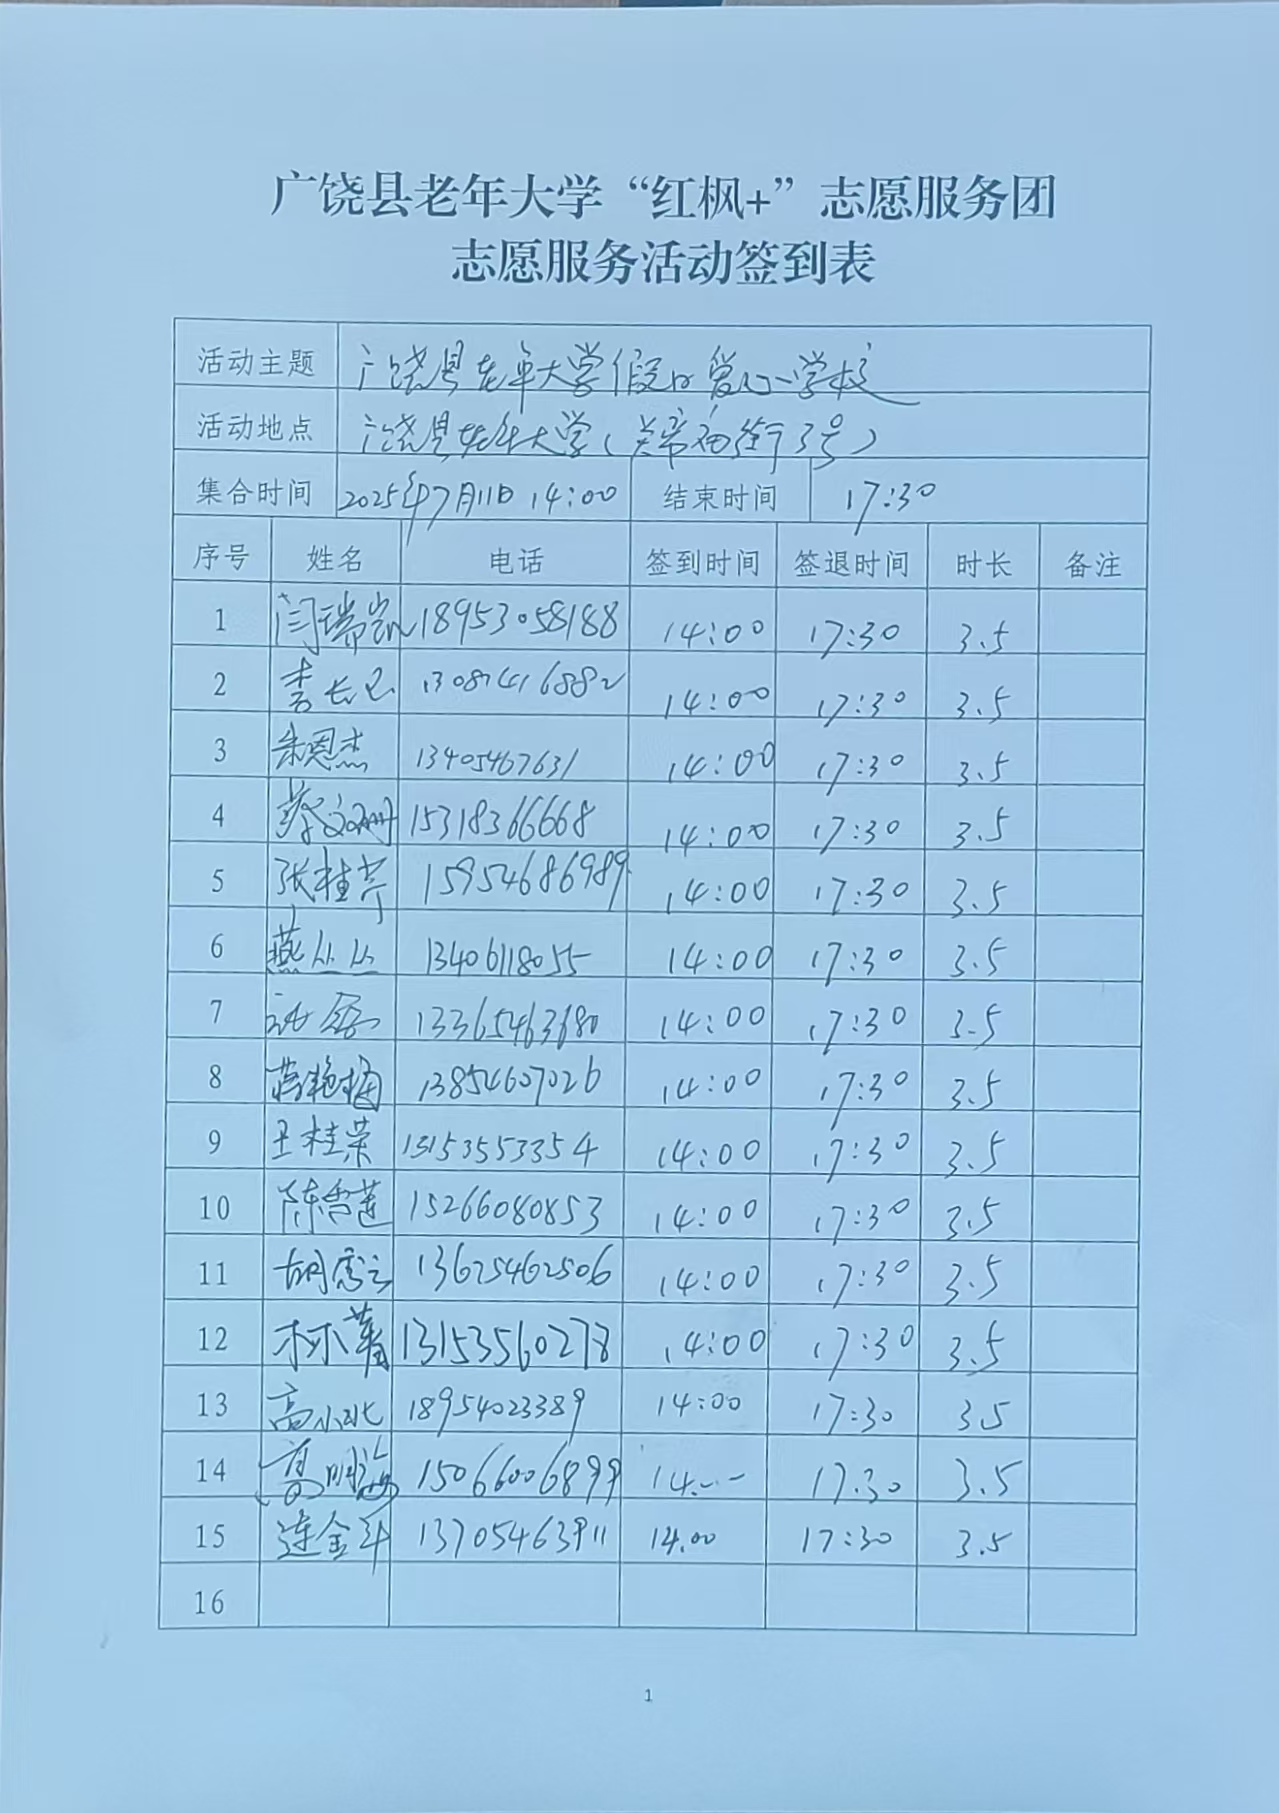 广饶县老年大学“红枫+”志愿服务团
志愿服务活动签到表
活动主题 广饶县老年大学假日爱心学校
活动地点 广饶县老年大学(关帝庙街73号)
集合时间 2025年7月11日 14:00 结束时间 17:30
序号 姓名 电话 签到时间 签退时间 时长 备注
1 闫瑞凯 18953058188 14:00 17:30 3.5
2 李长 14:00 17:30 3.5
3 朱恩杰 13405467631 14:00 17:30 3.5
4 蔡 15318366668 14:00 17:30 3.5
5 张桂芹 15954686989 14:00 17:30 3.5
6 燕丛丛 13406118055 14:00 17:30 3.5
7 13365463680 14:00 17:30 3.5
8 蒋艳梅 13854607026 14:00 17:30 3.5
9 王桂荣 13153553354 14:00 17:30 3.5
10 陈雪莲 15266080853 14:00 17:30 3.5
11 胡 13625462506 14:00 17:30 3.5
12 林 13153560278 14:00 17:30 3.5
13 高小北 18954023389 14:00 17:30 3.5
14 高明海 15066006899 14:00 17:30 3.5
15 连金 13705463911 14:00 17:30 3.5
16
1